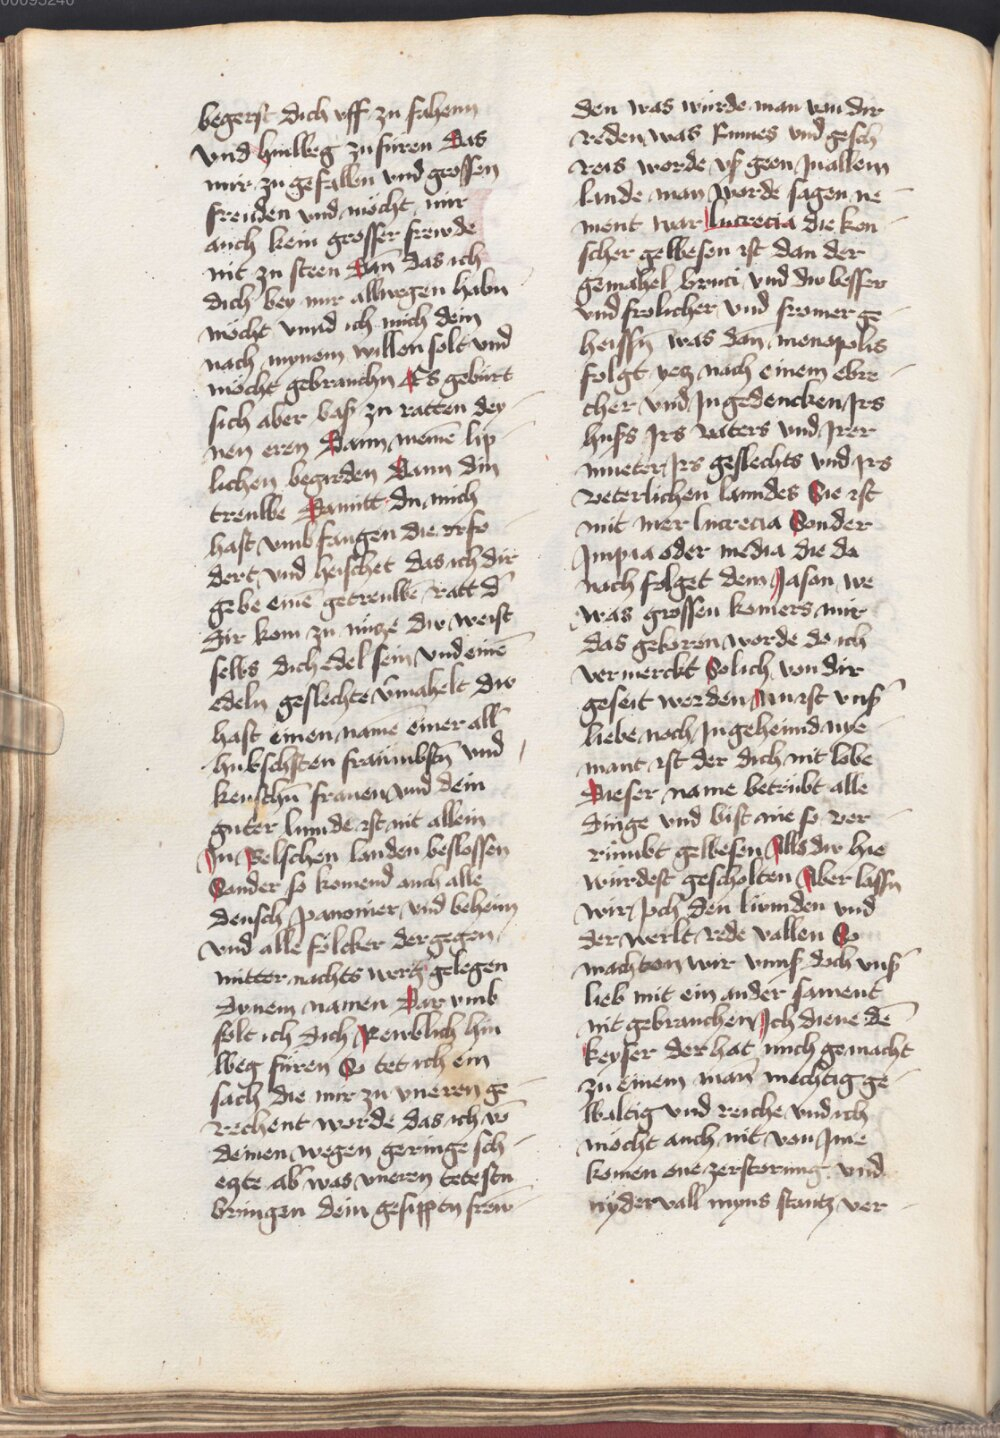 00095240
begerst dich uff zu fahenn
vnd hinweg zu füren Das
mir zu gefallen vnd grossen
freuden vnd möcht mir
auch kein grosser frewde
nit zu steen Dan̄ das ich
dich bey mir allwegen habn
möcht vnnd ich mich dein
nach mynem willen solt vnd
möcht gebrauchn Es gebürt
sich aber bas zu ratten dey-
nen eren Dann meinē lip-
lichen begirden Dann din
treuwe Damitt du mich
hast vmbfangen die erfo
dert vnd heischet das ich dir
gebe einē getreuwē ratt d̄
dir kom zu nücze du weist
selbs dich edel sein vnd einē
edeln geslechte v̄mahelt du
hast einen name einer all̄
hubschsten frauwbstn̄ vnd
keuschn̄ frauen vnd dein
guter lumde ist nit allein
In Welschen landen beslossen
Sonder so komend auch alle
deusch panonier vnd beheim
vnd alle fölcker der gegen
mitter nachts wertz gelegen
dynem namen Dar vmb
solt ich dich Rewblich hin
weg füren So tet ich ein
sach die mir zu vneren ge-
rechent worde das ich vō
deinen wegen geringe sch-
ezte ab̄ was vneren tetestu
bringen dein gesippten frew-
den was würde man von dir
reden was sinnes vnd gesch
reis worde vß geen In allem
lande man worde sagen ne-
ment war Lucrecia die keu-
scher gewesen ist dan der
gemahel bruti vnd die besser
vnd frolicher vnd fromer ge-
heissn̄ was dan̄ menopolis
folgt yez nach einem ebre-
cher vnd Ingedencken Irs
huss Irs vaters vnd Irer
mueter Irs geslechts vnd Irs
veterlichen lanndes Sie ist
nit mer lucrecia Sonder
Impia oder media die da
nach folget dem Jason we
was grossen komers mir
das geboren worde do ich
vermerckt Solich von dir
geseit werden Nu ist vns̄
liebe noch In geheimd nye-
mant ist der dich nit lobe
Dieser name betrübt alle
dinge vnd bist nie so ver-
rinubt gewesen Alls du hie
würdest gescholten Aber lassn
wir Joch den lumden vnd
der werlt rede vallen So
machten wir vnns doch vns̄
lieb mit ein ander sament
nit gebrauchen Ich diene dē
keyser der hat mich gemacht
zu einem man mechtig ge-
waltig vnd reiche vnd ich
möcht auch nit von Ime
komen one zerstorung vnd
nydervall myns stantz ver-